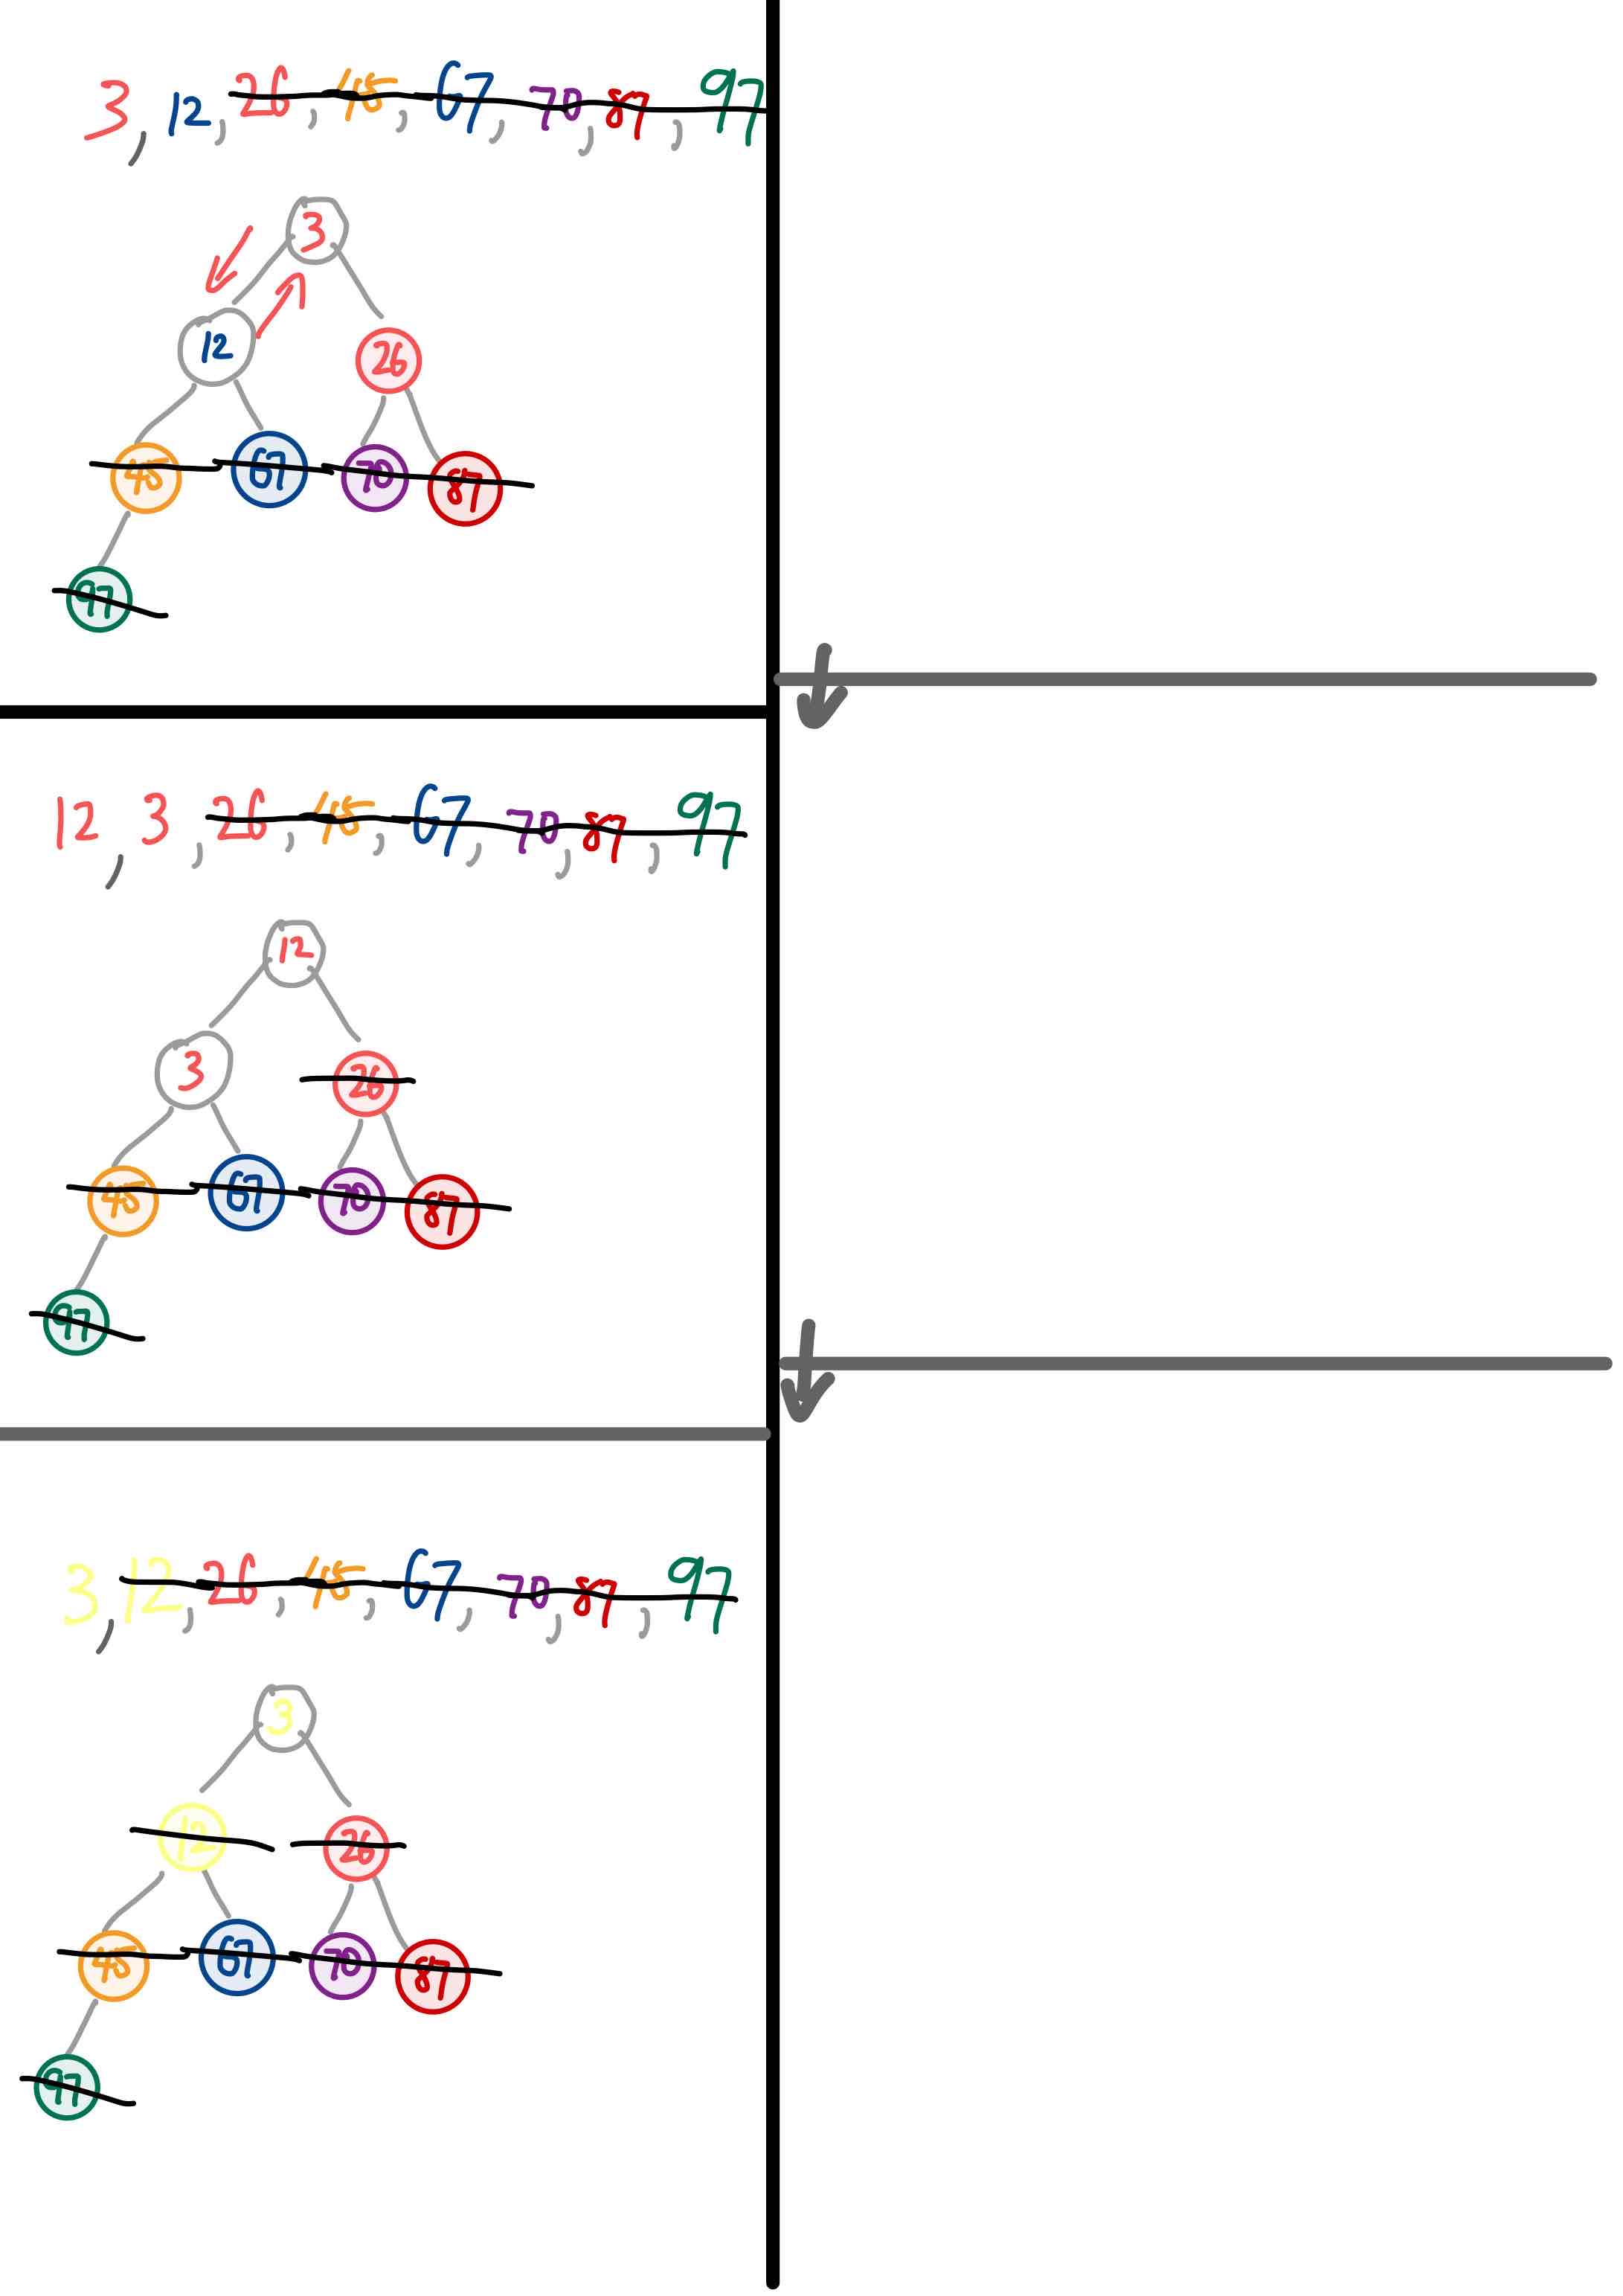 3, 12, 26, 45, 67, 70, 87, 97
3
12 26
45 67 70 87
97
12, 3, 26, 45, 67, 70, 87, 97
12
3 26
45 67 70 87
97
3, 12, 26, 45, 67, 70, 87, 97
3
12 26
45 67 70 87
97